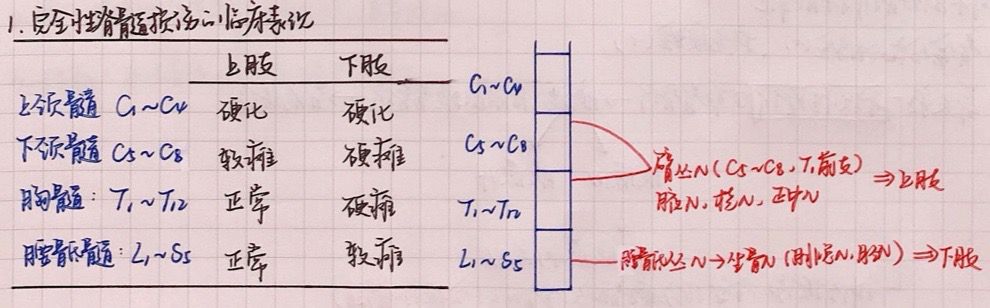 1. 完全性脊髓损伤的临床表现
上肢 下肢
上颈髓 C₁~C₄ 硬化 硬化
下颈髓 C₅~C₈ 软瘫 硬瘫
胸髓: T₁~T₁₂ 正常 硬瘫
腰骶髓: L₁~S₅ 正常 软瘫
C₁~C₄
C₅~C₈
T₁~T₁₂
L₁~S₅
臂丛N(C₅~C₈, T₁前支) ⇒上肢
腋N, 桡N, 正中N
腰骶丛N→坐骨N(胫N) ⇒下肢